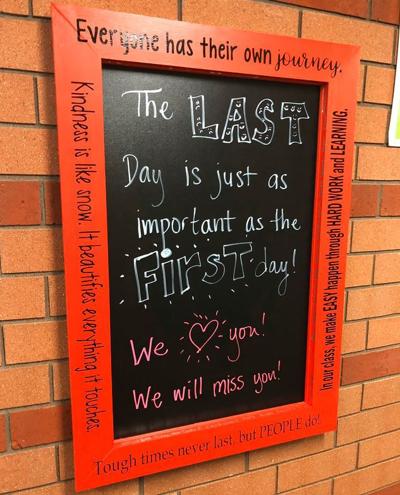 Everyone has their own journey.
Kindness is like snow. It beautifies everything it touches.
The LAST
Day is just as
important as the
FirST day!
We ♡ you!
We will miss you!
In our class, we make EASY happen through HARD WORK and LEARNING.
Tough times never last, but PEOPLE do!